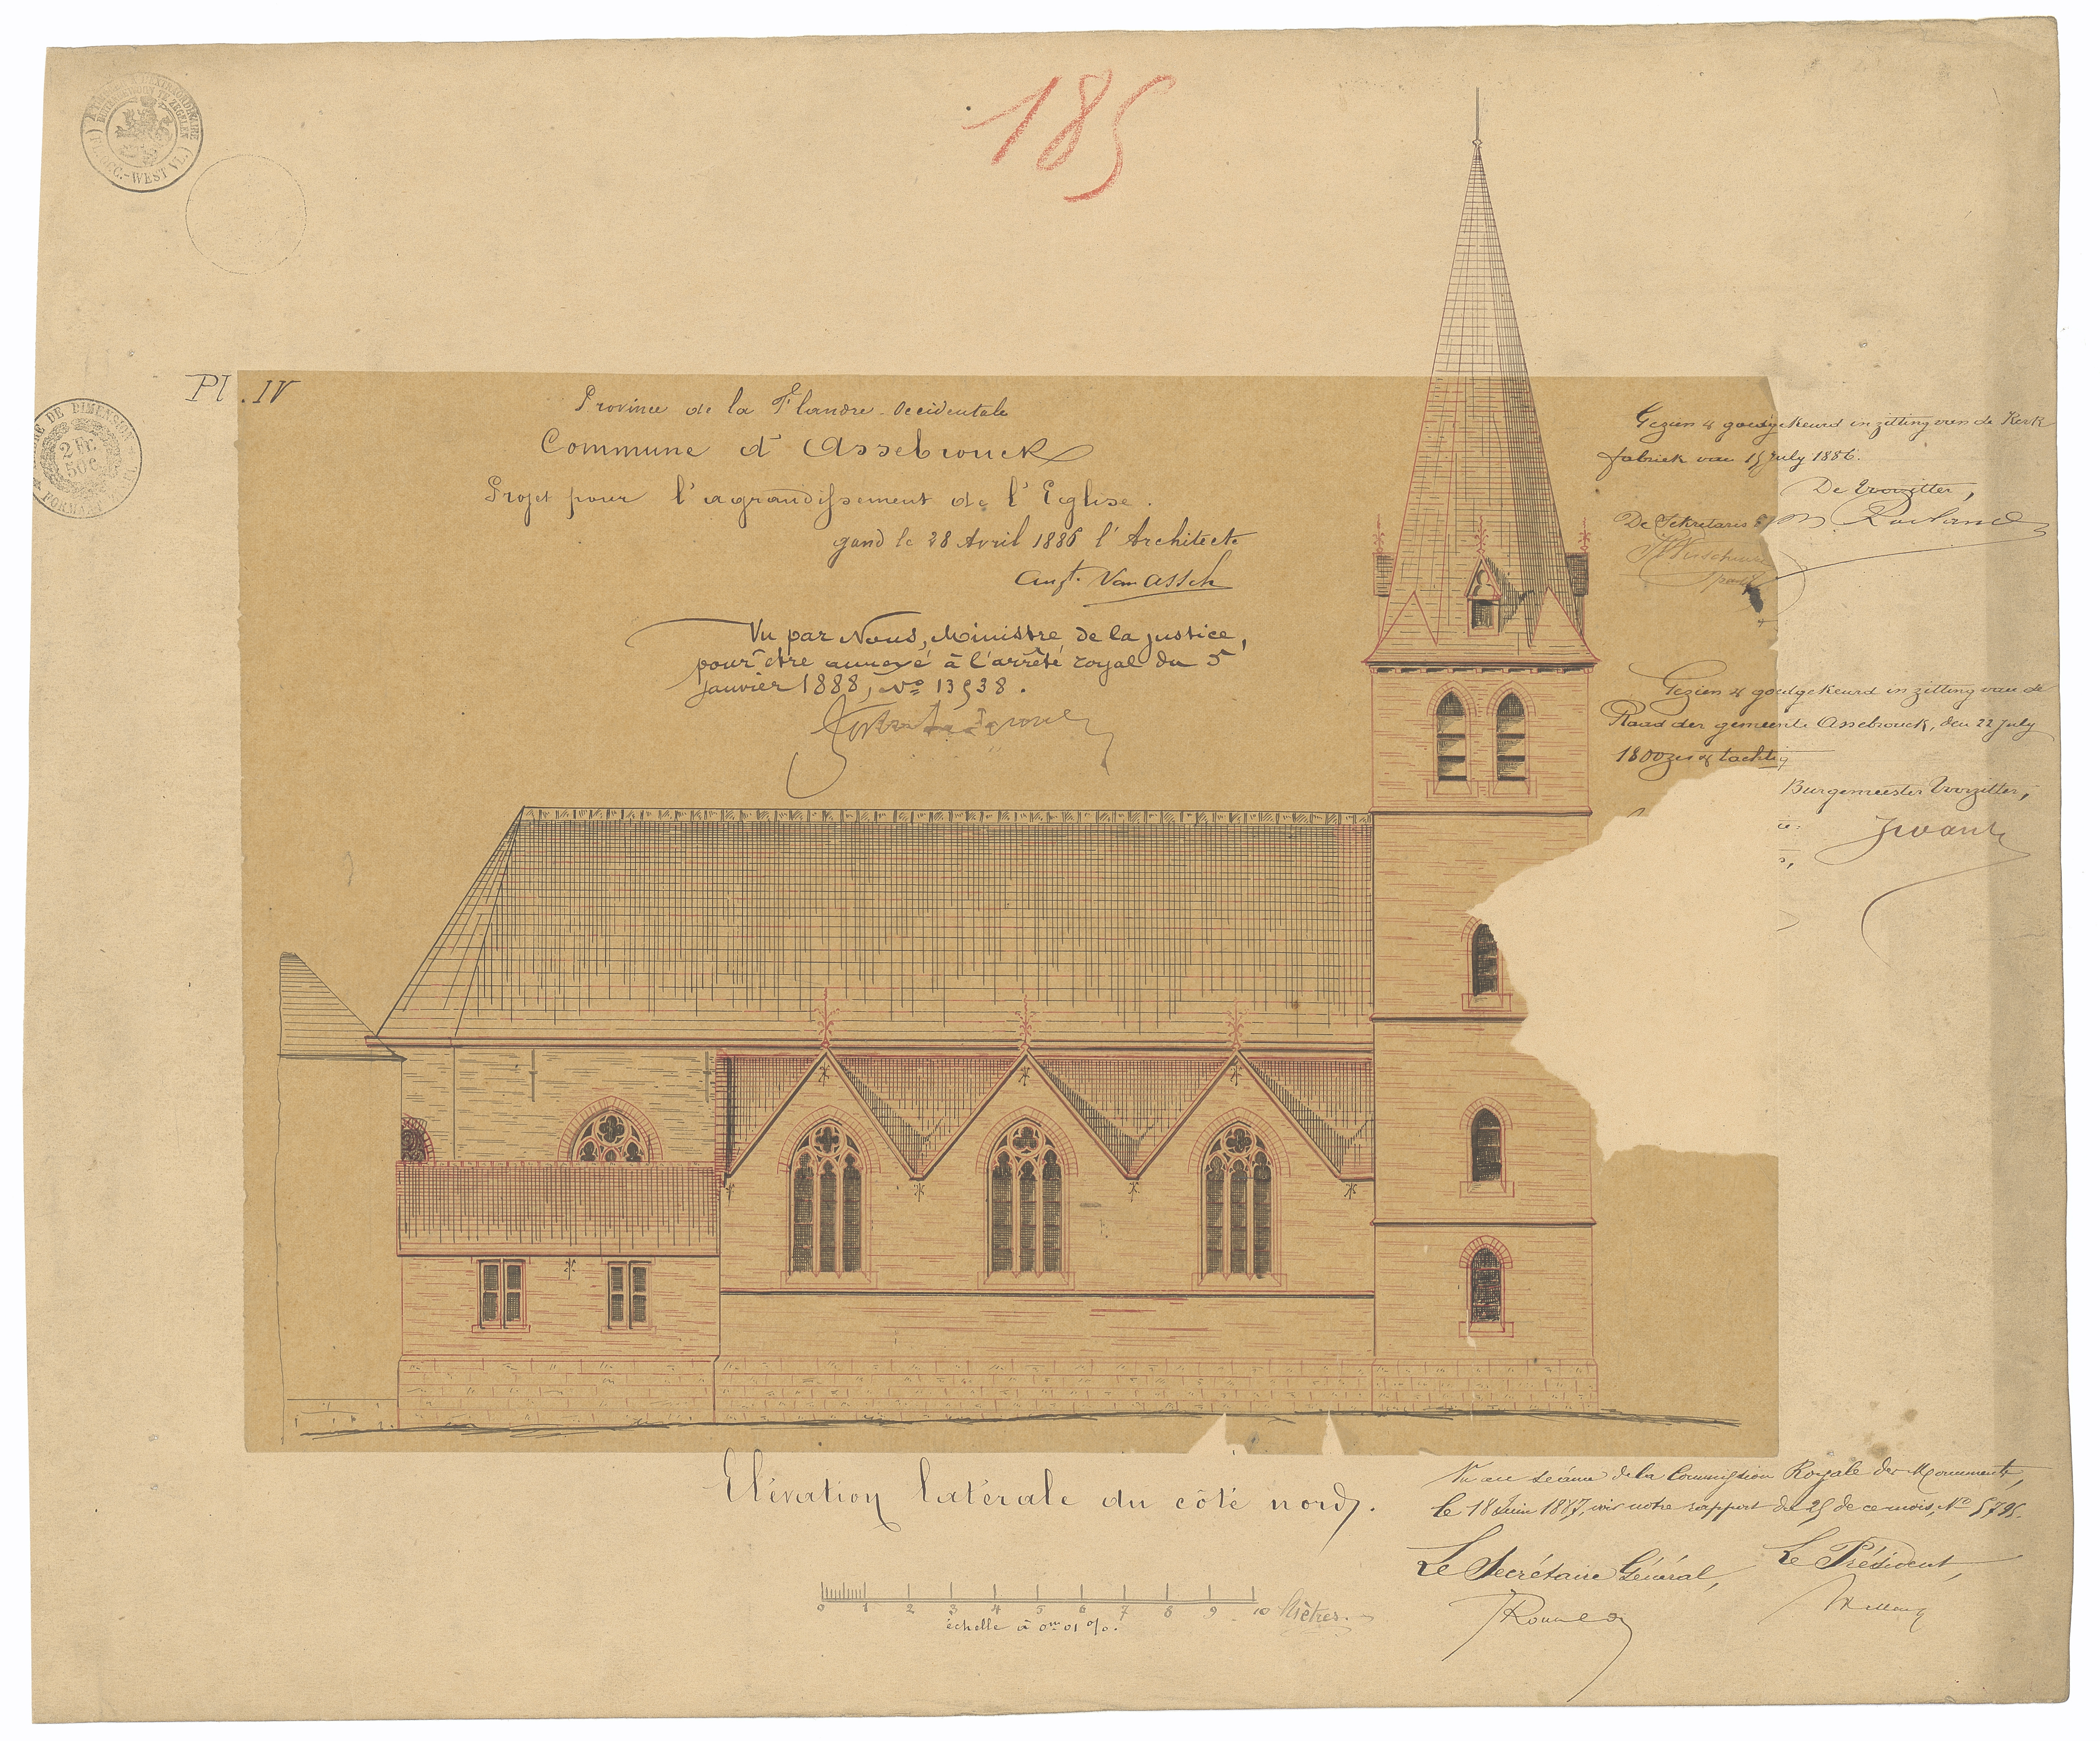 185
TIMBRE A L'EXTRAORDINAIRE
BUITENGEWOON TE ZEGELEN
(FL. OCC.-WEST VL.)
TIMBRE DE DIMENSION
2 Fr.
50 C.
FORMAAT
Pl. IV
Province de la Flandre-Occidentale
Commune d'Assebrouck
Projet pour l'agrandissement de l'Eglise.
gand le 28 Avril 1886 l'Architecte
Augt. Van assche
Vu par Nous, Ministre de la justice,
pour être annexé à l'arrêté royal du 5
janvier 1888, No 13538.
Gezien & goedgekeurd in zitting van de Kerk
fabriek van 15 July 1886.
De Voorzitter,
De Sekretaris
Gezien & goedgekeurd in zitting van de
Raad der gemeente Assebrouck, den 22 July
1800 zes & tachtig
Burgemeester Voorzitter,
Elévation latérale du côté nord.
0 1 2 3 4 5 6 7 8 9 10 Mètres.
échelle à 0m 01 %.
Vu en séance de la Commission Royale des Monuments,
le 18 Juin 1887, voir notre rapport du 25 de ce mois, No 5795.
Le Secrétaire Général, Le Président,